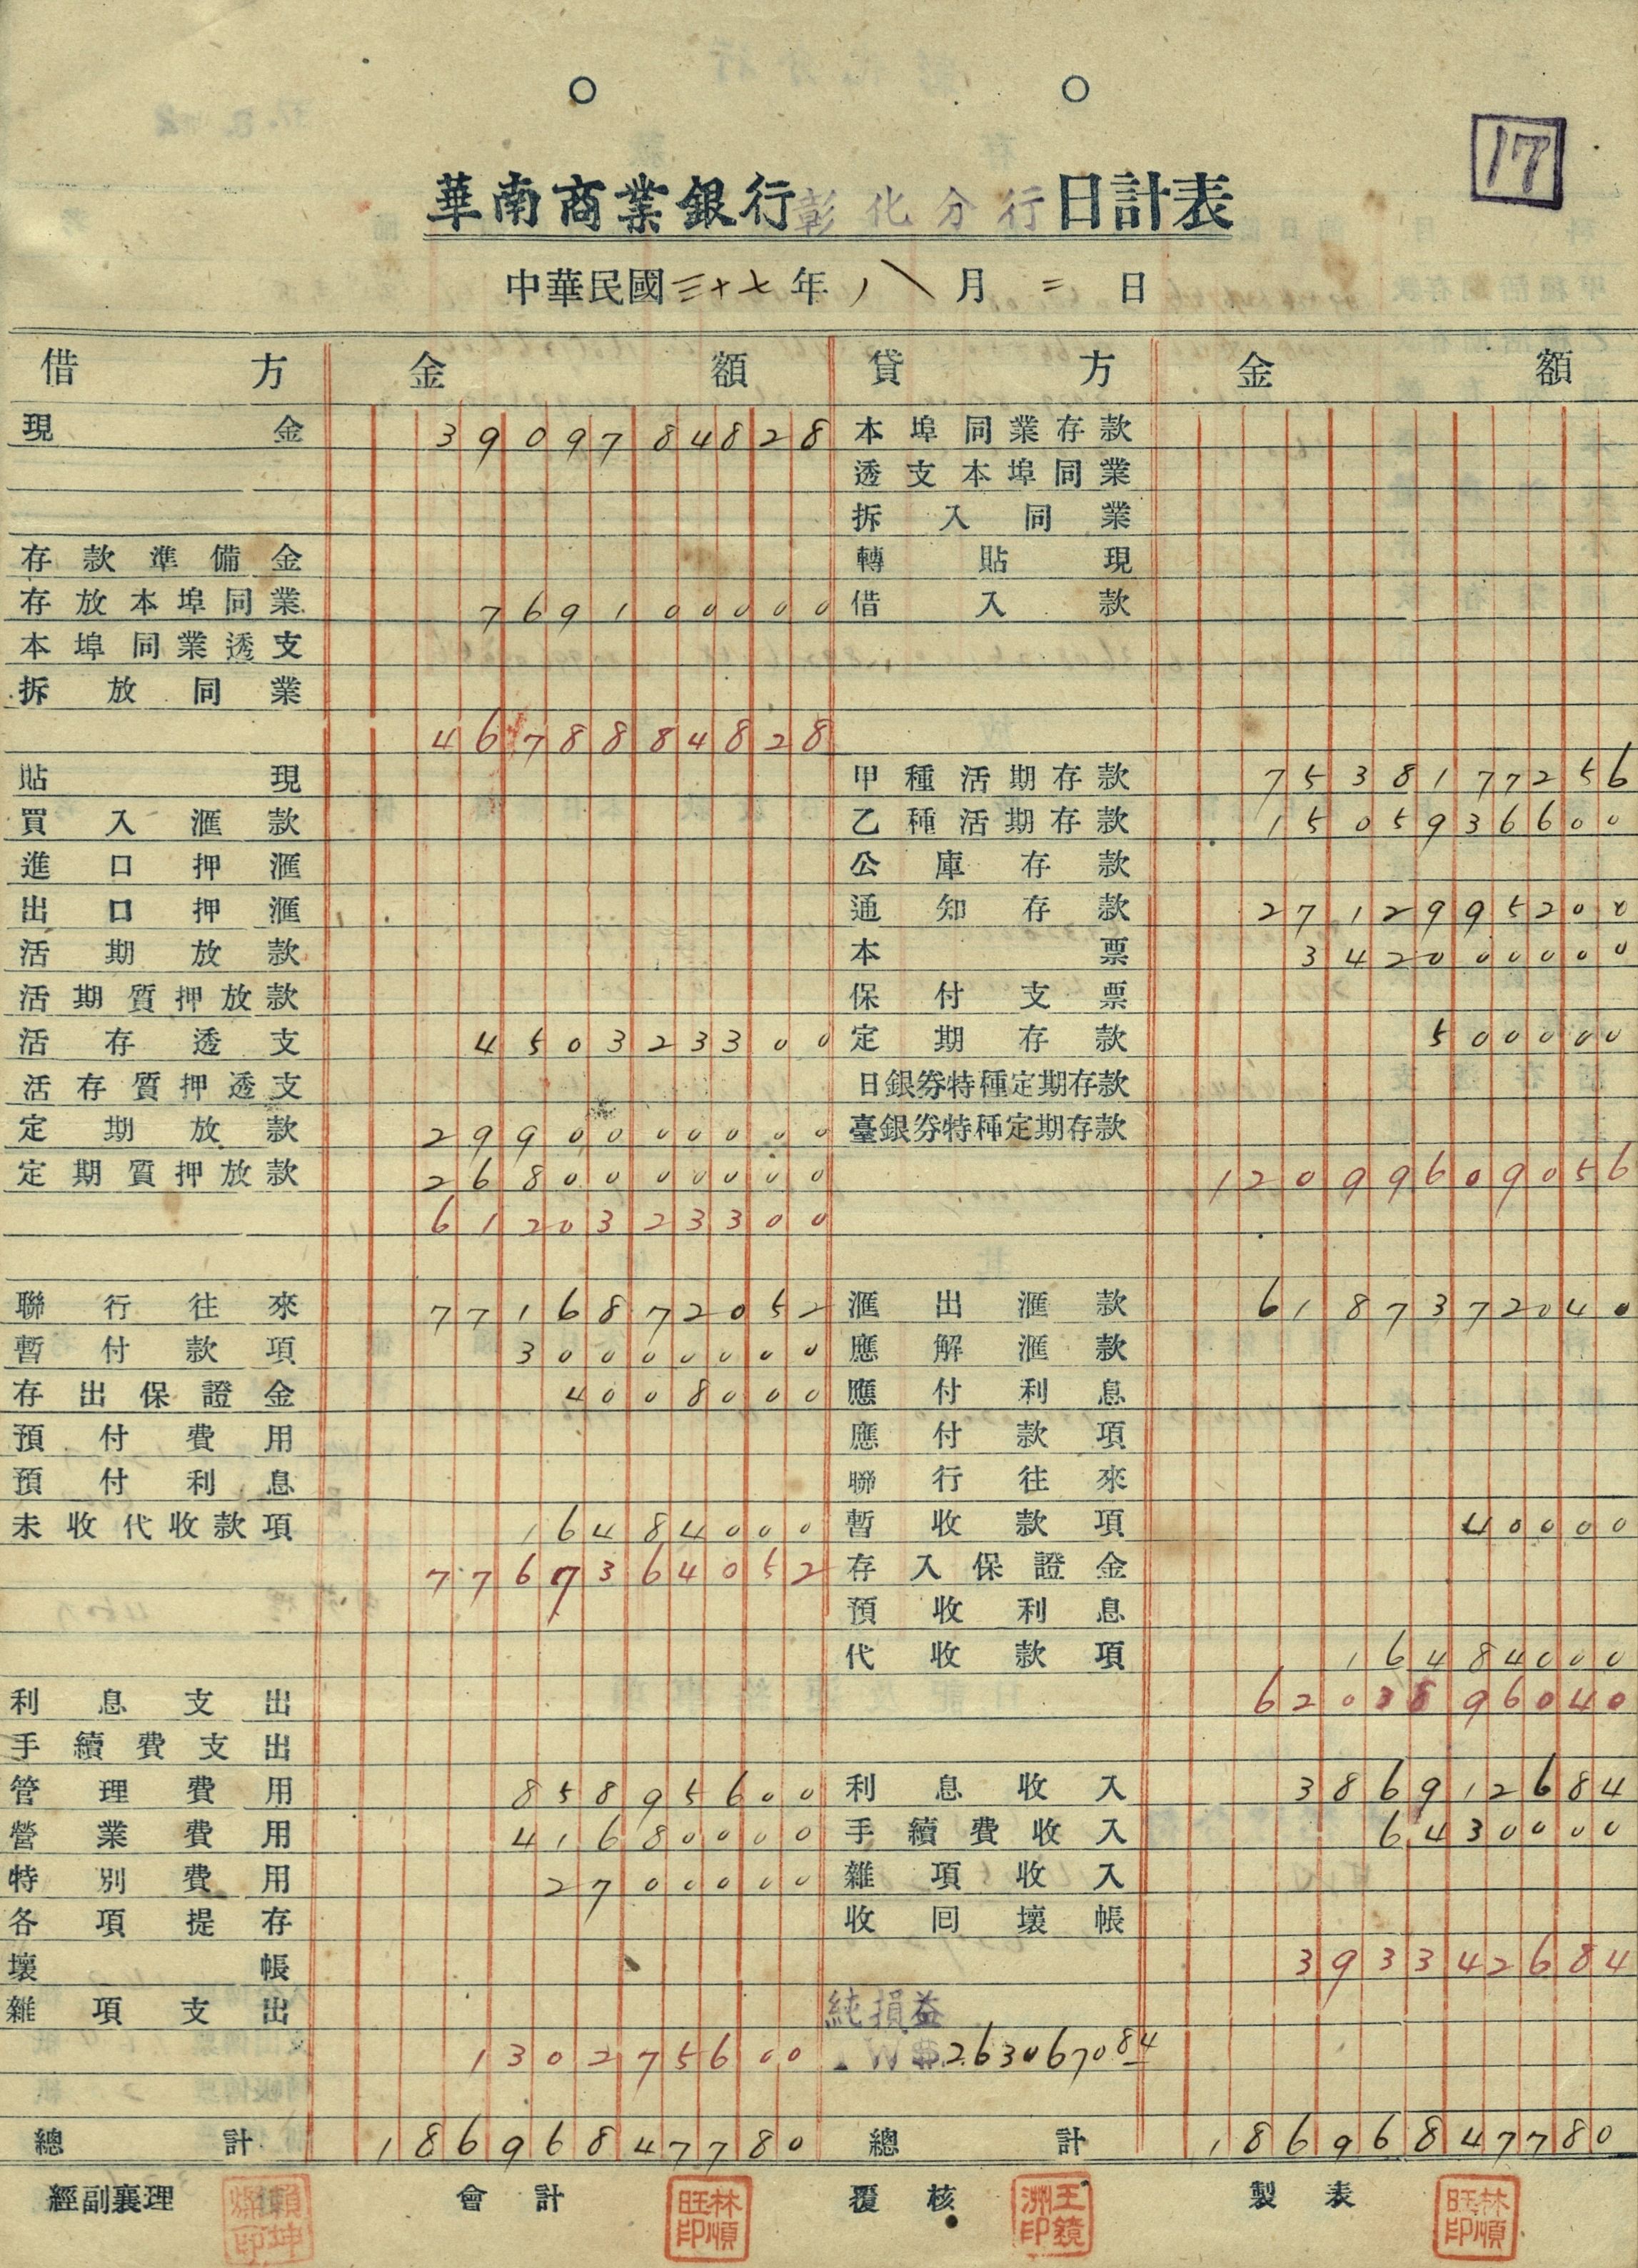 17
華南商業銀行彰化分行日計表
中華民國三十七年八月二日
借方 金額 貸方 金額
現金 3909784828 本埠同業存款
透支本埠同業
拆入同業
存款準備金 轉貼現
存放本埠同業 769100000 借入款
本埠同業透支
拆放同業
4678884828
貼現 甲種活期存款 7538177256
買入滙款 乙種活期存款 1505936600
進口押滙 公庫存款
出口押滙 通知存款 2712995200
活期放款 本票 342000000
活期質押放款 保付支票
活存透支 450323300 定期存款 500000
活存質押透支 日銀券特種定期存款
定期放款 2990000000 臺銀券特種定期存款
定期質押放款 2680000000 12099609056
6120323300
聯行往來 7716872052 滙出滙款 6187372040
暫付款項 30000000 應解滙款
存出保證金 4008000 應付利息
預付費用 應付款項
預付利息 聯行往來
未收代收款項 16484000 暫收款項 40000
7767364052 存入保證金
預收利息
代收款項 16484000
利息支出 6203896040
手續費支出
管理費用 85895600 利息收入 386912684
營業費用 41680000 手續費收入 6430000
特別費用 2700000 雜項收入
各項提存 收囘壞帳
壞帳 393342684
雜項支出 純損益
130275600 TW$263067084
總計 18696847780 總計 18696847780
經副襄理 會計 林順旺印 覆核 王鏡洲印 製表 林順旺印